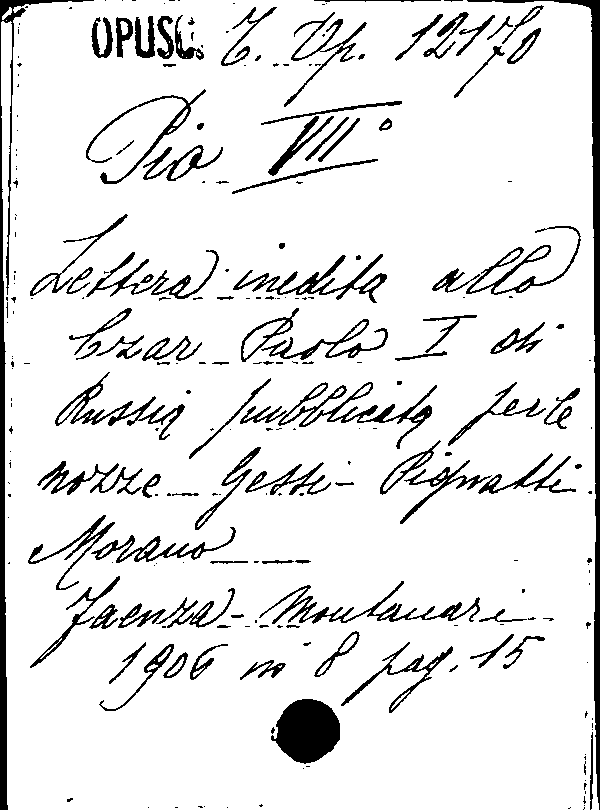 OPUSC. T. Vp. 12170
Pio VII°
Lettera inedita allo
Czar Paolo I di
Russia pubblicata per le
nozze Gessi - Pignatti
Morano
Faenza - Montanari
1906 in 8 pag. 15